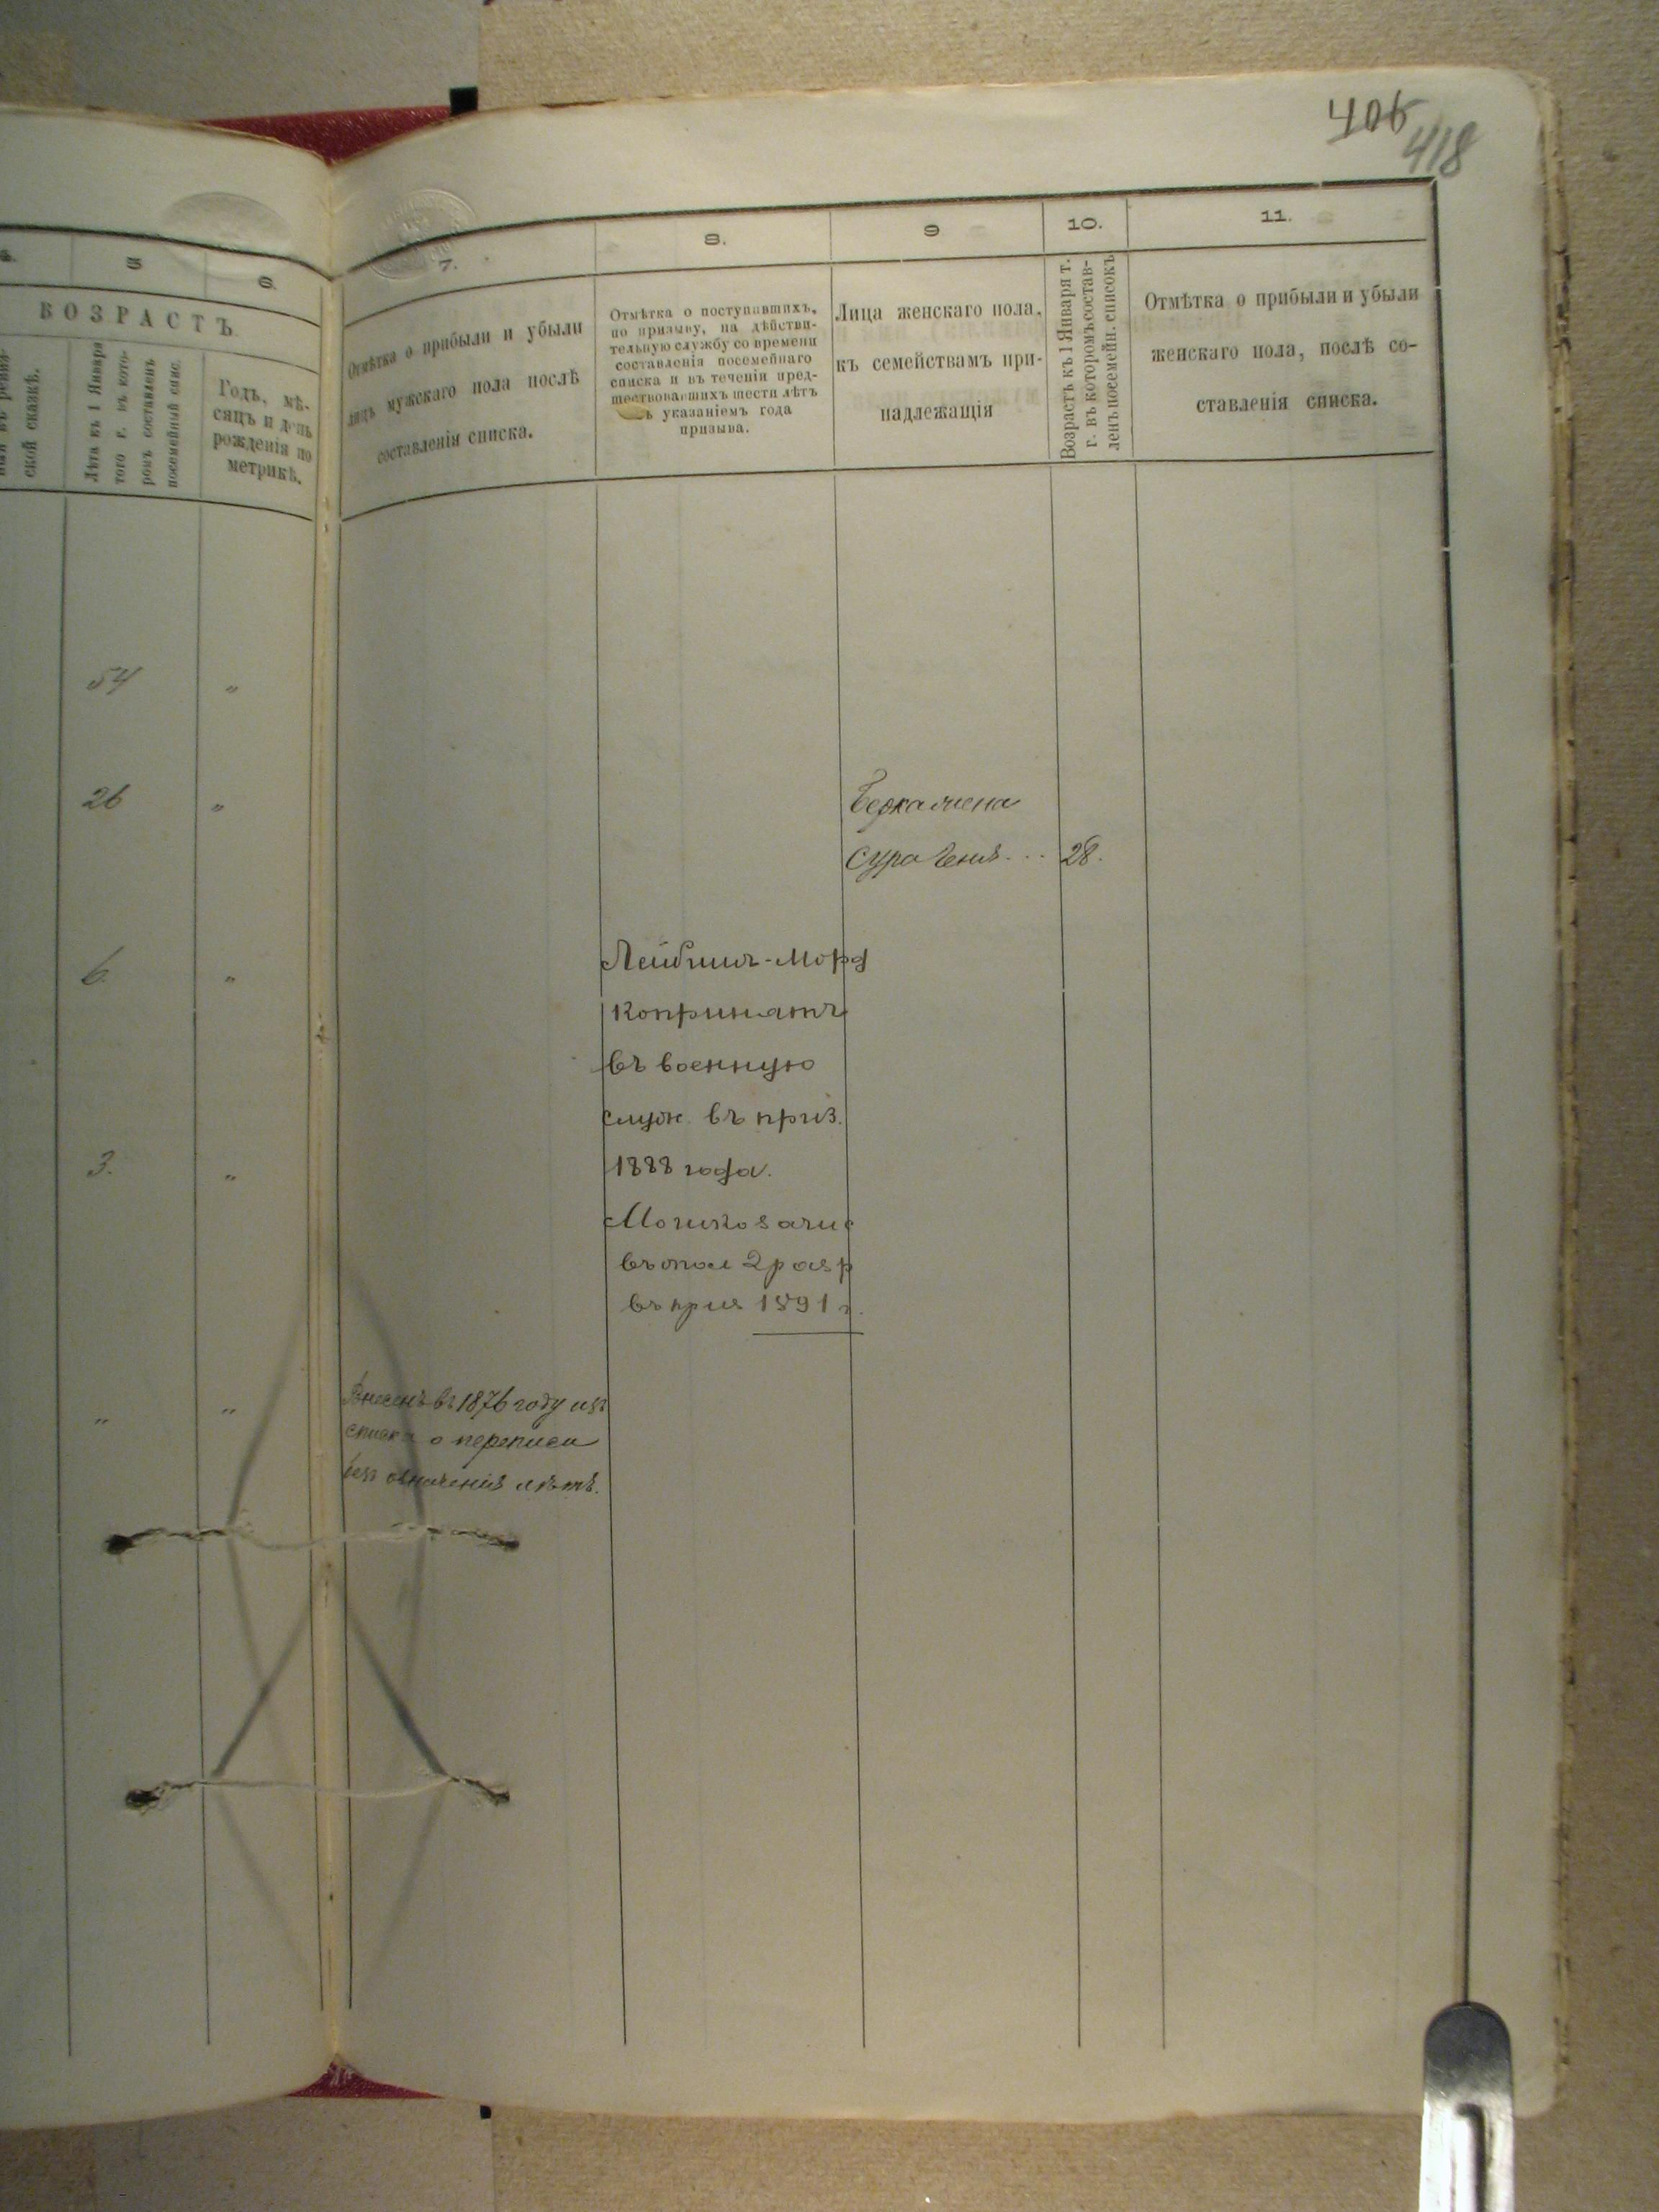 406
418
4.
5
6.
7.
8.
9
10.
11.
ВОЗРАСТЪ
ской сказкѣ.
Лѣта къ 1 Января
того г. въ кото-
ромъ составленъ
посемейный спис.
Годъ, мѣ-
сяцъ и день
рожденія по
метрикѣ.
Отмѣтка о прибыли и убыли
лицъ мужскаго пола послѣ
составленія списка.
Отмѣтка о поступившихъ,
по призыву, на дѣйстви-
тельную службу со времени
составленія посемейнаго
списка и въ теченіи пред-
шествовавшихъ шести лѣтъ
ъ указаніемъ года
призыва.
Лица женскаго пола,
къ семействамъ при-
надлежащія
Возрастъ къ 1 Января т.
г. въ которомъ состав-
ленъ посемейн. списокъ
Отмѣтка о прибыли и убыли
женскаго пола, послѣ со-
ставленія списка.
54 "
26 "
Берка жена
Сура Беня... 28.
6. "
Лейбишъ-Морд
Ко принятъ
въ военную
служ. въ приз.
1888 года.
3. "
Мошко зачис
въ опол 2 разр
въ приз 1891 г.
" "
Внесенъ въ 1876 году изъ
списка о переписи
безъ означенія лѣтъ.